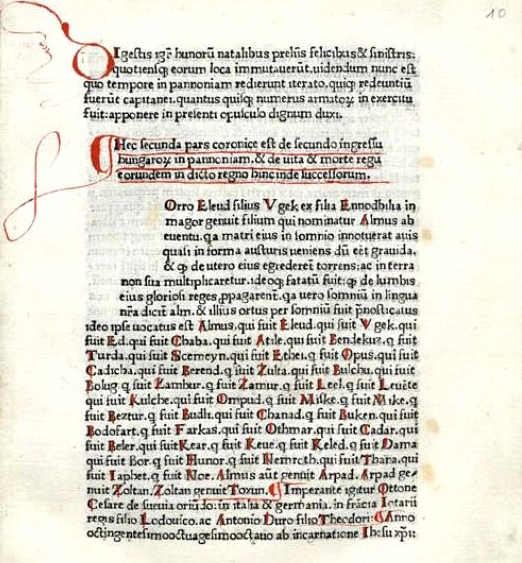 10
DIgestis igr̄ hunorū natalibus prelijs felicibus & sinistris:
quotiensq; eorum loca immutauerūt. uidendum nunc est
quo tempore in pannoniam redierunt iterato. quiq; redeuntiū
fuerūt capitanei. quantus quisq; numerus armatoꝝ in exercitu
fuit: apponere in presenti opusculo dignum duxi.
Hec secunda pars coronice est de secundo ingressu
hungaroꝝ in pannoniam. & de uita & morte regū
eorundem in dicto regno hincinde successorum.
Orro Eleud filius Vgek ex filia Ennodbilia in
magor genuit filium qui nominatur Almus ab
euentu. qa matri eius in somnio innotuerat auis
quasi in forma austuris ueniens dū eēt grauida.
& ꝙ de utero eius egrederet̄ torrens: ac in terra
non sua multiplicaretur. ideoq; fatatū fuit: ꝙ de lumbis
eius gloriosi reges ꝓpagarent̄. qa uero somniū in lingua
nr̄a dicit̄ alm. & illius ortus per somniū fuit p̄nosticatus
ideo ipse uocatus est Almus. qui fuit Eleud. qui fuit Vgek. qui
fuit Ed. qui fuit Chaba. qui fuit Atile. qui fuit Bendekuz. q̄ fuit
Turda. qui fuit Scemeyn. qui fuit Ethei. q̄ fuit Opus. qui fuit
Cadicha. qui fuit Berend. q̄ fuit Zulta. qui fuit Bulchu. qui fuit
Bolug. q̄ fuit Zambur. q̄ fuit Zamur. q̄ fuit Leel. q̄ fuit Leuēte
qui fuit Kulche. qui fuit Ompud. q̄ fuit Miske. q̄ fuit Mike. q̄
fuit Beztur. q̄ fuit Budli. q̄ fuit Chanad. q̄ fuit Buken. qui fuit
Bodofart. q̄ fuit Farkas. qui fuit Othmar. qui fuit Cadar. qui
fuit Beler. qui fuit Kear. q̄ fuit Keue. q̄ fuit Keled. q̄ fuit Dama
qui fuit Bor. q̄ fuit Hunor. q̄ fuit Nemroth. qui fuit Thana. qui
fuit Iaphet. q̄ fuit Noe. Almus aūt genuit Arpad. Arpad ge⸗
nuit Zoltan. Zoltan genuit Toxun. Imperante igitur Ottone
Cesare de sueuia oriūdo: in italia & germania. in frācia Lotarii
regis filio Lodouico. ac Antonio Duro filio Theodori: Anno
octingentesimooctuagesimooctauo ab incarnatione Ihesu xp̄i: